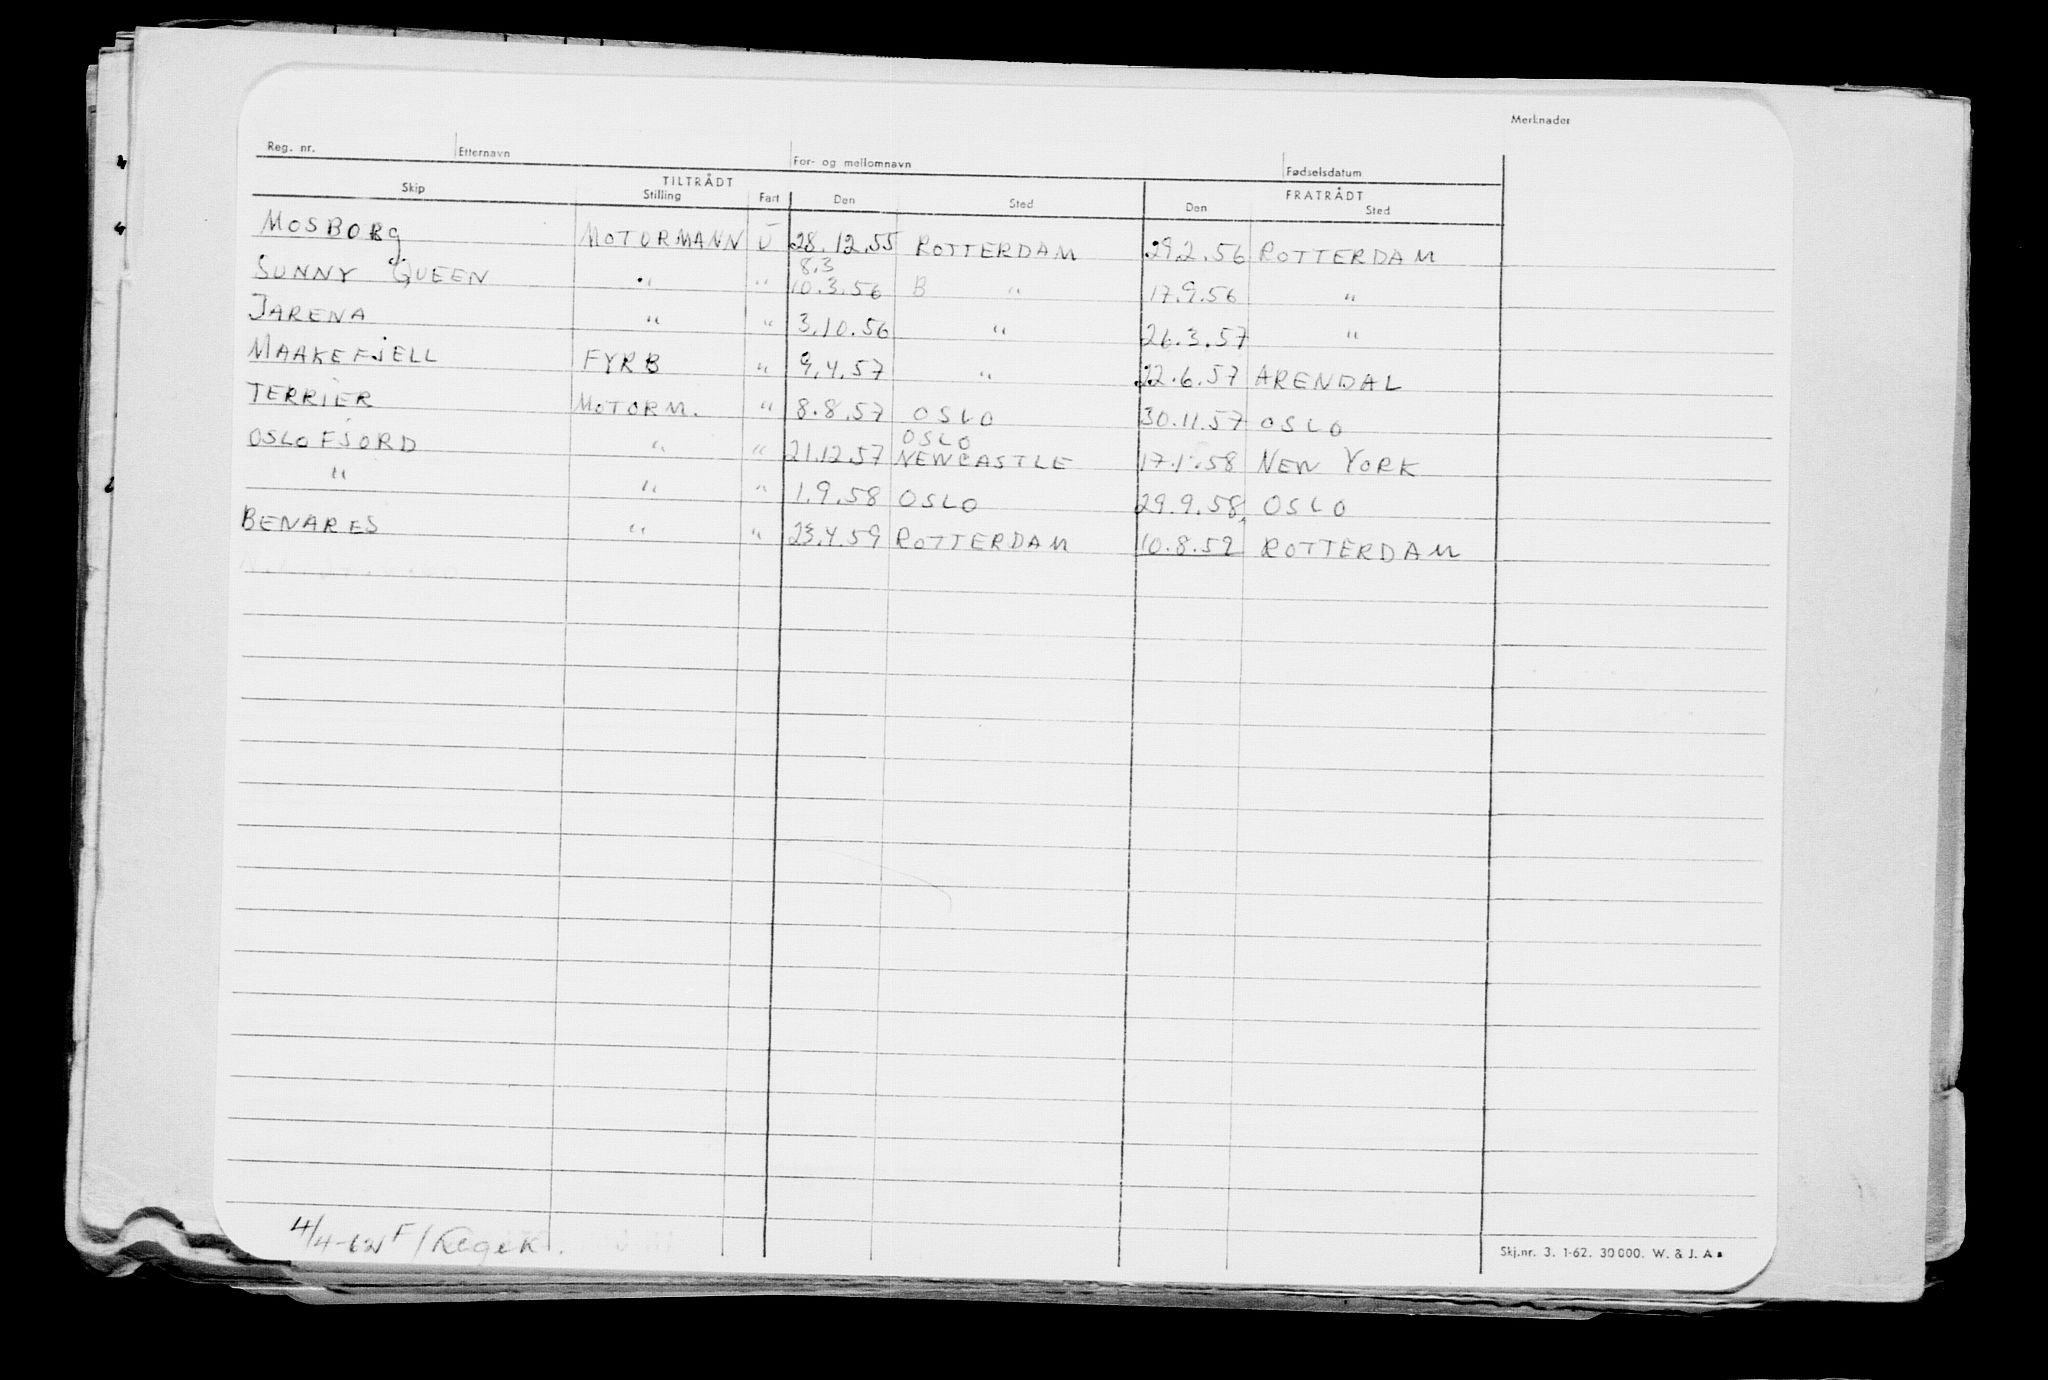 Merknader
Reg. nr. Etternavn For- og mellomnavn Fødselsdatum
TILTRÅDT FRATRÅDT
Skip Stilling Fart Den Sted Den Sted
MOSBORG MOTORMANN U 28.12.55 ROTTERDAM 29.2.56 ROTTERDAM
8.3
SUNNY QUEEN " " 10.3.56 B " 17.9.56 "
JARENA " " 3.10.56 " 26.3.57 "
MAAKEFJELL FYRB " 9.4.57 " 22.6.57 ARENDAL
TERRIER MOTORM. " 8.8.57 OSLO 30.11.57 OSLO
OSLO
OSLOFJORD " " 21.12.57 NEWCASTLE 17.1.58 NEW YORK
" " " 1.9.58 OSLO 29.9.58 OSLO
BENARES " " 23.4.59 ROTTERDAM 10.8.59 ROTTERDAM
4/4-62 F/
Skj.nr. 3. 1-62. 30000. W. & J. A